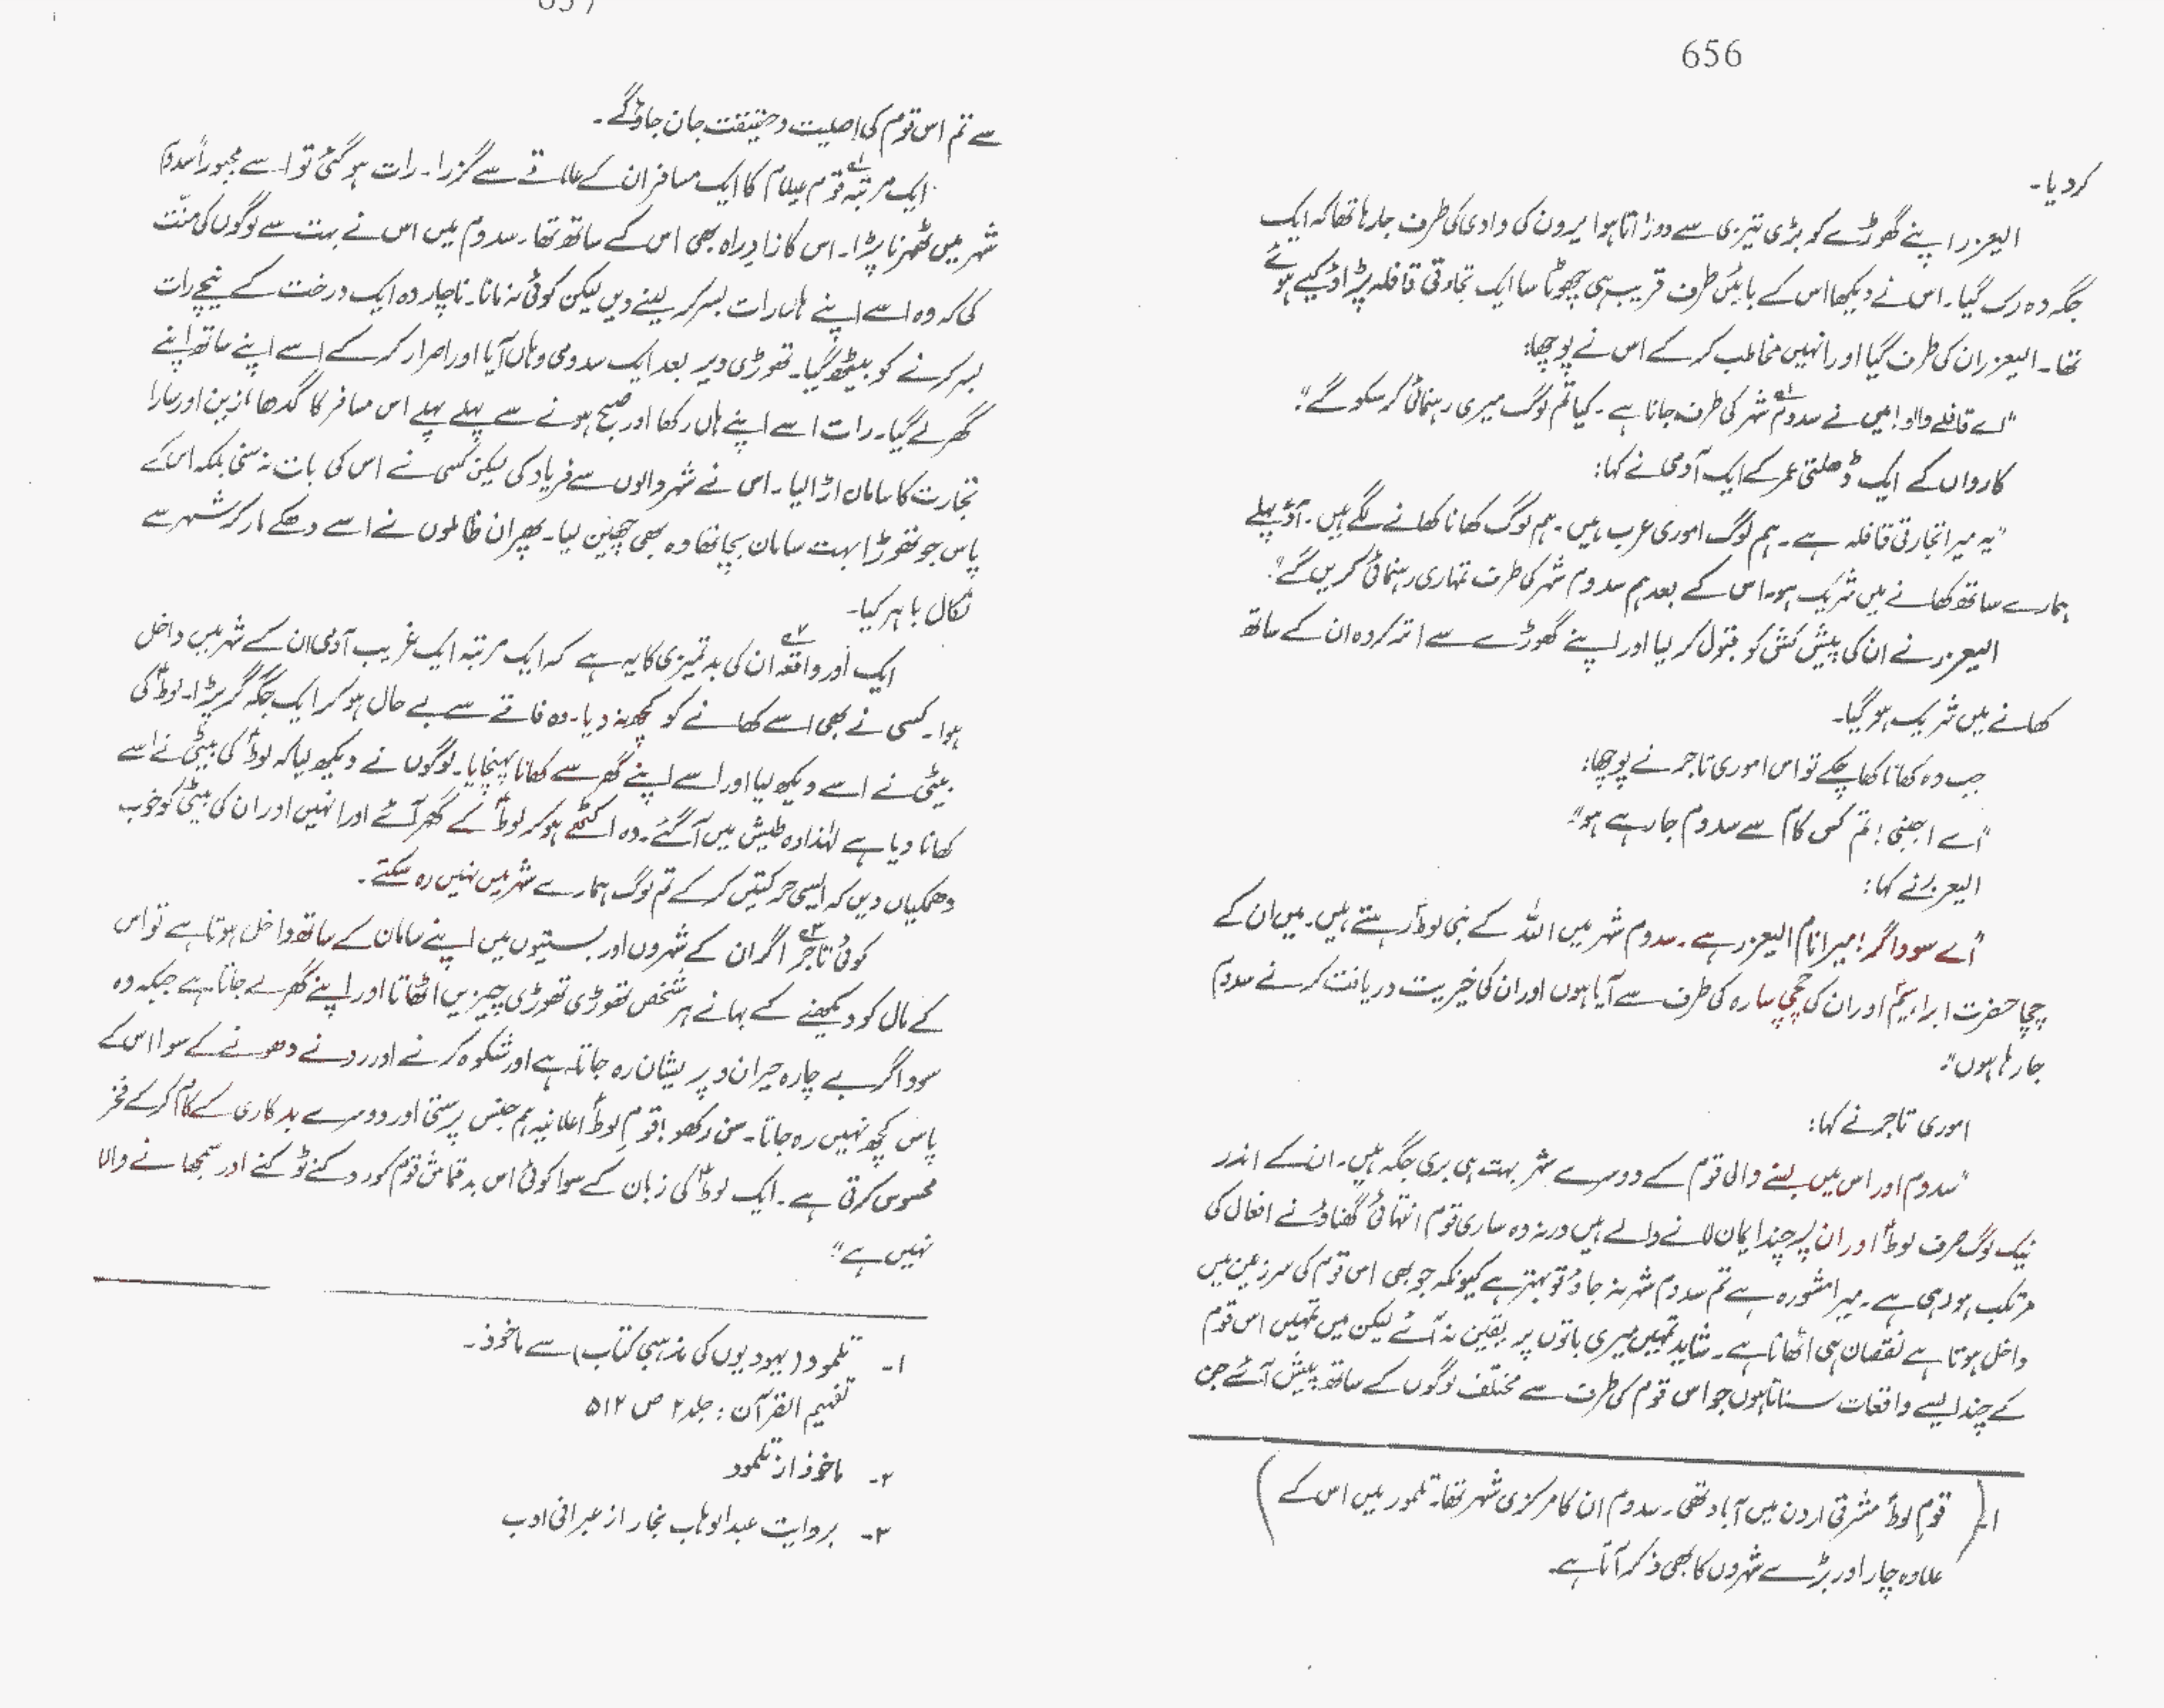 656
کر دیا۔
الیعزر اپنے گھوڑے کو بڑی تیزی سے دوڑاتا ہوا یردن کی وادی کی طرف جا رہا تھا کہ ایک
جگہ وہ رک گیا۔ اس نے دیکھا اس کے بائیں طرف قریب ہی چھوٹا سا ایک تجارتی قافلہ پڑاؤ کیے ہوئے
تھا۔ الیعزر ان کی طرف گیا اور انہیں مخاطب کر کے اس نے پوچھا:
"اے قافلے والو! میں نے سدوم۱ شہر کی طرف جانا ہے۔ کیا تم لوگ میری رہنمائی کر سکو گے"؟
کارواں کے ایک ڈھلتی عمر کے ایک آدمی نے کہا:
"یہ میرا تجارتی قافلہ ہے۔ ہم لوگ اموری عرب ہیں۔ ہم لوگ کھانا کھانے لگے ہیں۔ آؤ پہلے
ہمارے ساتھ کھانے میں شریک ہو۔ اس کے بعد ہم سدوم شہر کی طرف تمہاری رہنمائی کریں گے"۔
الیعزر نے ان کی پیش کش کو قبول کر لیا اور اپنے گھوڑے سے اتر کر وہ ان کے ساتھ
کھانے میں شریک ہو گیا۔
جب وہ کھانا کھا چکے تو اس اموری تاجر نے پوچھا:
"اے اجنبی! تم کس کام سے سدوم جا رہے ہو"؟
الیعزر نے کہا:
"اے سوداگر! میرا نام الیعزر ہے۔ سدوم شہر میں اللہ کے نبی لوطؑ رہتے ہیں۔ میں ان کے
چچا حضرت ابراہیمؑ اور ان کی چچی سارہ کی طرف سے آیا ہوں اور ان کی خیریت دریافت کرنے سدوم
جا رہا ہوں"۔
اموری تاجر نے کہا:
"سدوم اور اس میں بسنے والی قوم کے دوسرے شہر بہت ہی بری جگہ ہیں۔ ان کے اندر
نیک لوگ صرف لوطؑ اور ان پہ چند ایمان لانے والے ہیں ورنہ وہ ساری قوم انتہائی گھناؤنے افعال کی
مرتکب ہو رہی ہے۔ میرا مشورہ ہے تم سدوم شہر نہ جاؤ تو بہتر ہے کیونکہ جو بھی اس قوم کی سرزمین میں
داخل ہوتا ہے نقصان ہی اٹھاتا ہے۔ شاید تمہیں میری باتوں پر یقین نہ آئے لیکن میں تمہیں اس قوم
کے چند ایسے واقعات سناتا ہوں جو اس قوم کی طرف سے مختلف لوگوں کے ساتھ پیش آئے جن
۱۔ (قومِ لوطؑ مشرقی اردن میں آباد تھی۔ سدوم ان کا مرکزی شہر تھا۔ تلمود میں اس کے)
علاوہ چار اور بڑے شہروں کا بھی ذکر آتا ہے۔
657
سے تم اس قوم کی اصلیت و حقیقت جان جاؤ گے۔
ایک مرتبہ۱ قوم عیلام کا ایک مسافر ان کے علاقے سے گزرا۔ رات ہو گئی تو اسے مجبوراً سدوم
شہر میں ٹھہرنا پڑا۔ اس کا زادِ راہ بھی اس کے ساتھ تھا۔ سدوم میں اس نے بہت سے لوگوں کی منّت
کی کہ وہ اسے اپنے ہاں رات بسر کر لینے دیں لیکن کوئی نہ مانا۔ ناچار وہ ایک درخت کے نیچے رات
بسر کرنے کو بیٹھ گیا۔ تھوڑی دیر بعد ایک سدومی وہاں آیا اور اصرار کر کے اسے اپنے ساتھ اپنے
گھر لے گیا۔ رات اسے اپنے ہاں رکھا اور صبح ہونے سے پہلے پہلے اس مسافر کا گدھا، زین اور سارا
تجارت کا سامان اڑا لیا۔ اس نے شہر والوں سے فریاد کی لیکن کسی نے اس کی بات نہ سنی بلکہ اس کے
پاس جو تھوڑا بہت سامان بچا تھا وہ بھی چھین لیا۔ پھر ان ظالموں نے اسے دھکے مار کر شہر سے
نکال باہر کیا۔
ایک اور واقعہ۲ ان کی بدتمیزی کا یہ ہے کہ ایک مرتبہ ایک غریب آدمی ان کے شہر میں داخل
ہوا۔ کسی نے بھی اسے کھانے کو کچھ نہ دیا۔ وہ فاقے سے بے حال ہو کر ایک جگہ گر پڑا۔ لوطؑ کی
بیٹی نے اسے دیکھ لیا اور اسے اپنے گھر سے کھانا پہنچایا۔ لوگوں نے دیکھ لیا کہ لوطؑ کی بیٹی نے اسے
کھانا دیا ہے لہٰذا وہ طیش میں آ گئے۔ وہ اکٹھے ہو کر لوطؑ کے گھر آئے اور انہیں اور ان کی بیٹی کو خوب
دھمکیاں دیں کہ ایسی حرکتیں کر کے تم لوگ ہمارے شہر میں نہیں رہ سکتے۔
کوئی تاجر۳ اگر ان کے شہروں اور بستیوں میں اپنے سامان کے ساتھ داخل ہوتا ہے تو اس
کے مال کو دیکھنے کے بہانے ہر شخص تھوڑی تھوڑی چیزیں اٹھاتا اور اپنے گھر لے جاتا ہے جبکہ وہ
سوداگر بے چارہ حیران و پریشان رہ جاتا ہے اور شکوہ کرنے اور رونے دھونے کے سوا اس کے
پاس کچھ نہیں رہ جاتا۔ سن رکھو! قومِ لوطؑ اعلانیہ ہم جنس پرستی اور دوسرے بدکاری کے کام کر کے فخر
محسوس کرتی ہے۔ ایک لوطؑ کی زبان کے سوا کوئی اس بدقماش قوم کو روکنے ٹوکنے اور سمجھانے والا
نہیں ہے"۔
۱۔ تلمود (یہودیوں کی مذہبی کتاب) سے ماخوذ۔
تفہیم القرآن: جلد ۲ ص ۵۱۲
۲۔ ماخوذ از تلمود
۳۔ بروایت عبدالوہاب نجار از عبرانی ادب